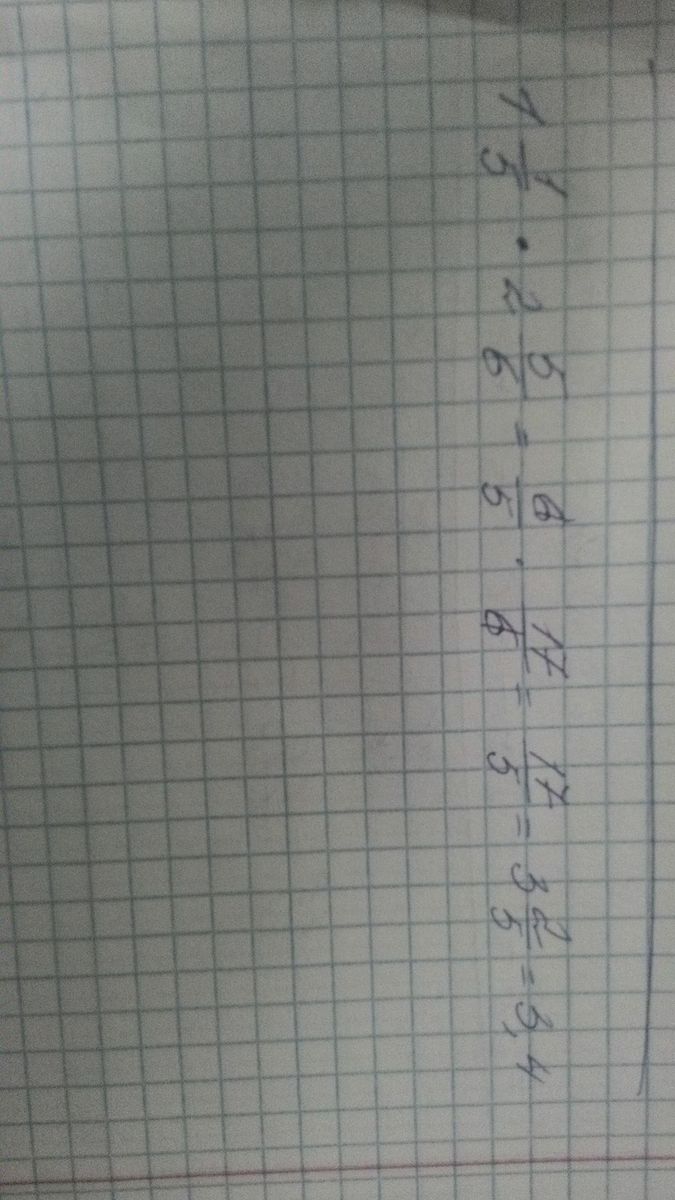 1 1/5 · 2 5/6 = 6/5 · 17/6 = 17/5 = 3 2/5 = 3,4